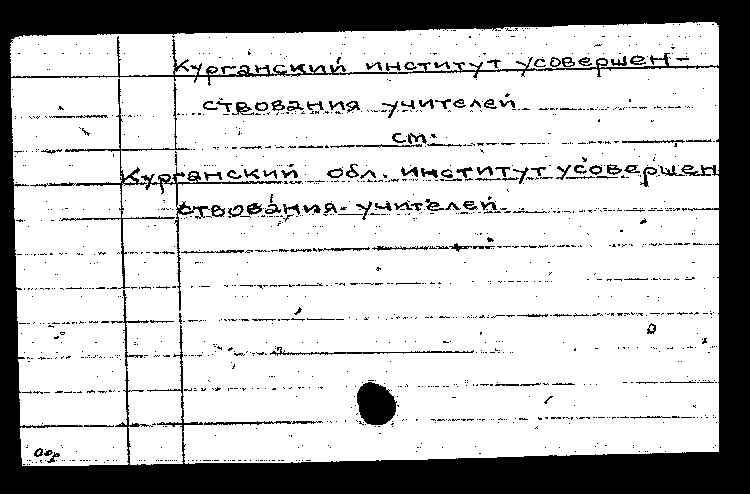 Курганский институт усовершен-
ствования учителей
см.
Курганский обл. институт усовершен
ствования учителей.